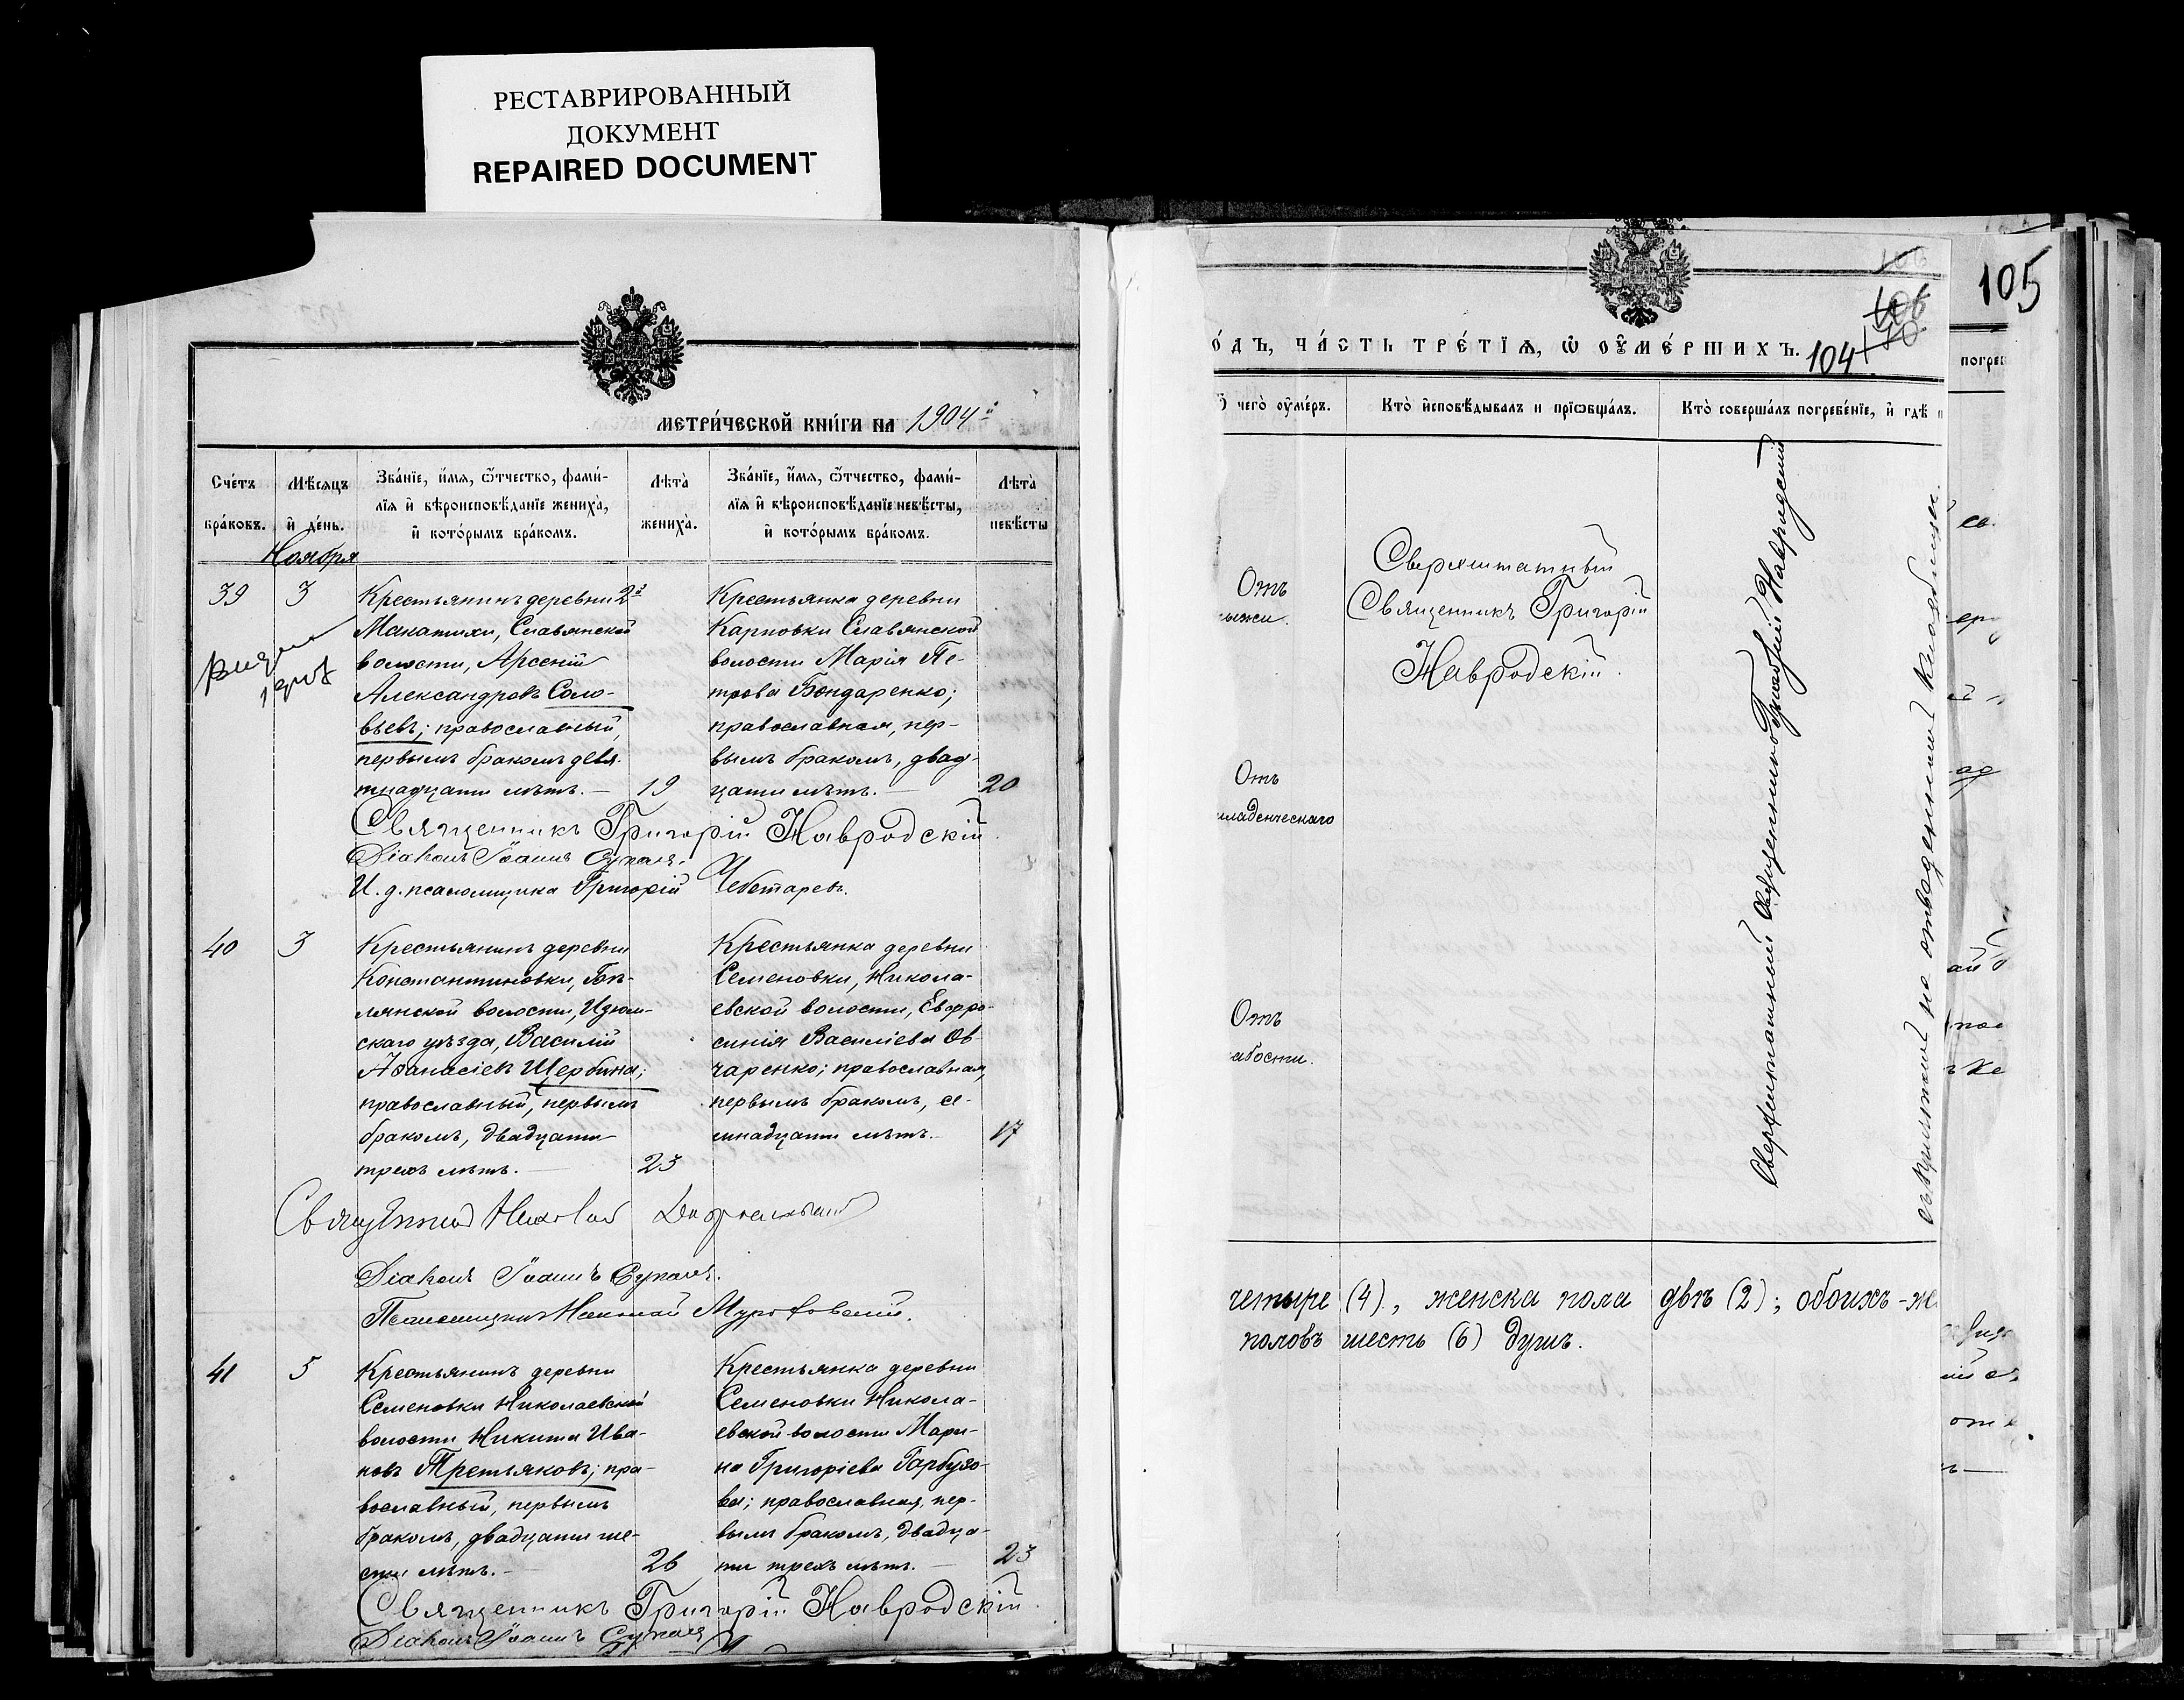 РЕСТАВРИРОВАННЫЙ
ДОКУМЕНТ
REPAIRED DOCUMENT
МЕТРИ́ЧЕСКОЙ КНИ́ГИ НА 1904й
Сче́тъ бра́ковъ.
Мѣ́сяцъ и҆ де́нь.
Зва́нїе, и҆́мѧ, ѻ҆́тчество, фами́-
лїѧ и҆ вѣроисповѣ́данїе жениха̀,
и҆ кото́рымъ бра́комъ.
Лѣта̀ жениха̀.
Зва́нїе, и҆́мѧ, ѻ҆́тчество, фами́-
лїѧ и҆ вѣроисповѣ́данїе невѣ́сты,
и҆ кото́рымъ бра́комъ.
Лѣта̀ невѣ́сты
Ноября
39
3
Крестьянинъ деревни 2й
Макатихи, Славянской
волости, Арсеній
Александровъ Соло-
вьевъ; православный,
первымъ бракомъ девя-
тнадцати лѣтъ. —
19
Крестьянка деревни
Карповки Славянской
волости Марія Пе-
трова Бондаренко;
православная, пер-
вымъ бракомъ, двад-
цати лѣтъ. —
20
Священникъ Григорій Навродскій.
Діаконъ Іоаннъ
И. д. псаломщика Григорій Чеботаревъ.
40
3
Крестьянинъ деревни
Константиновки,
волости, Изюм-
скаго уѣзда, Василій
Аѳанасіевъ Щербина;
православный, первымъ
бракомъ, двадцати
трехъ лѣтъ. —
23
Крестьянка деревни
Семеновки, Никола-
евской волости, Евфро-
синія Василіева Ов-
чаренко; православная,
первымъ бракомъ, се-
мнадцати лѣтъ. —
17
Священникъ Николай
Діаконъ Іоаннъ
Псаломщикъ Николай
41
5
Крестьянинъ деревни
Семеновки Николаевской
волости Никита Ива-
новъ Третьяковъ; пра-
вославный, первымъ
бракомъ, двадцати ше-
сти лѣтъ. —
26
Крестьянка деревни
Семеновки Никола-
евской волости Мари-
на Григоріева Гарбузо-
ва; православная, пер-
вымъ бракомъ, двадца-
ти трехъ лѣтъ. —
23
Священникъ Григорій Навродскій.
Діаконъ Іоаннъ
о́дъ, ча́сть тре́тїѧ, ѡ҆ оу҆ме́ршихъ.
106
104
105
чегѡ̀ оу҆ме́ръ.
Кто̀ и҆сповѣ́дывалъ и҆ прїѡбща́лъ.
Кто̀ соверша́лъ погребе́нїе, и҆ гдѣ̀
погреб
Отъ
Сверхштатный
Священникъ Григорій
Навродскій.
Отъ
младенческаго
Отъ
абости.
Сверхштатный Священникъ Григорій Навродскій
на отведенномъ кладбищѣ.
четыре (4), женска пола двѣ (2); обоихъ-же
половъ шесть (6) душъ.